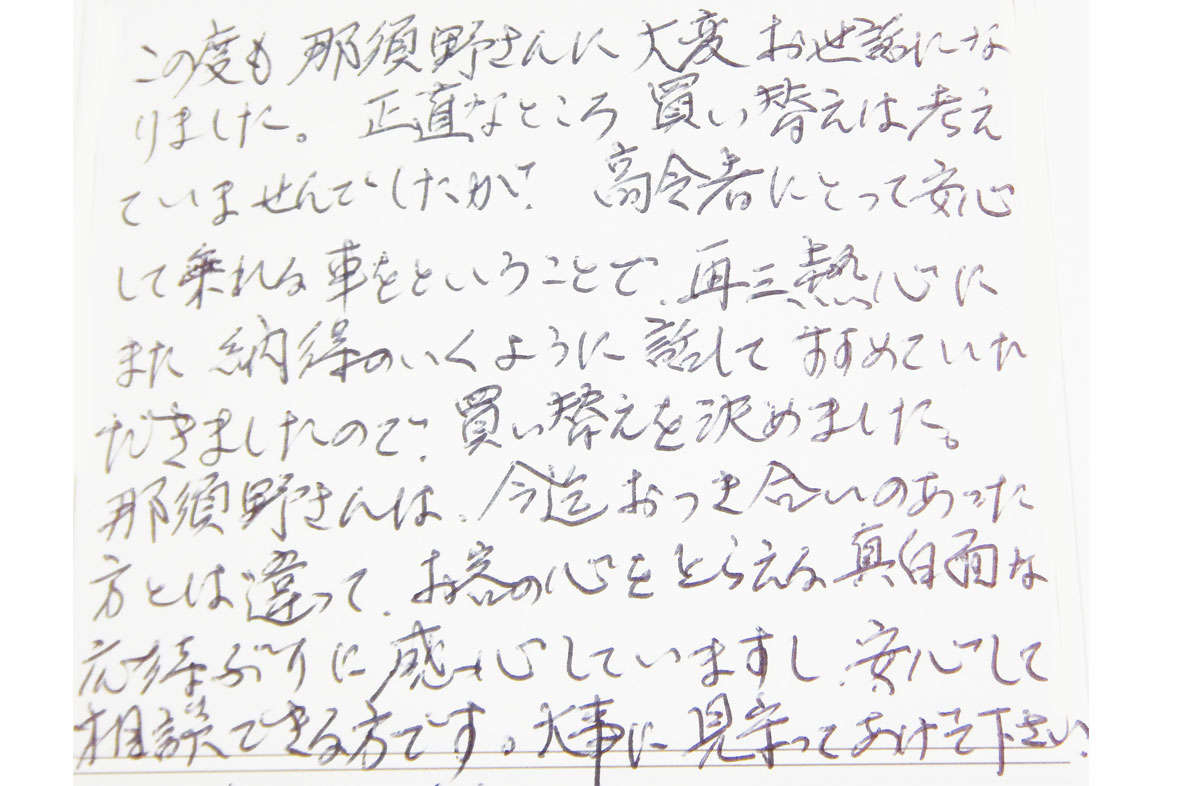 この度も 那須野さんに 大変 お世話にな
りました。 正直なところ 買い替えは考え
ていませんでしたが、 高令者にとって安心
して乗れる車をということで、再三熱心に
また 納得のいくように 話して すすめていた
だきましたので、買い替えを決めました。
那須野さんは、今迄おつき合いのあった
方とは違って、お客の心をとらえる真白面な
応待ぶりに感心していますし、安心して
相談できる方です。大事に見守ってあげて下さい